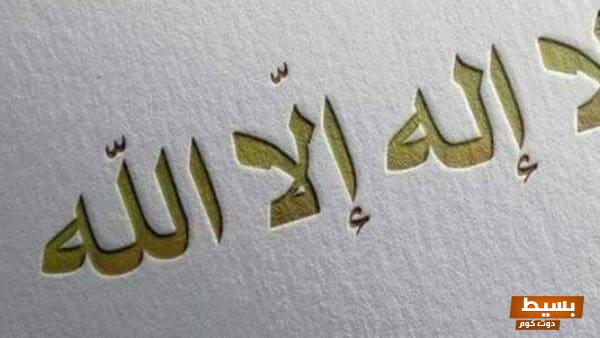 لا إله إلّا اللّه
بسيط
دوت كوم